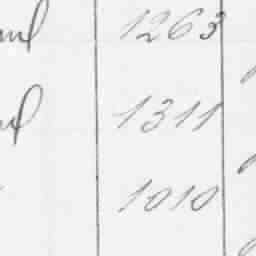 1263
1311
1010